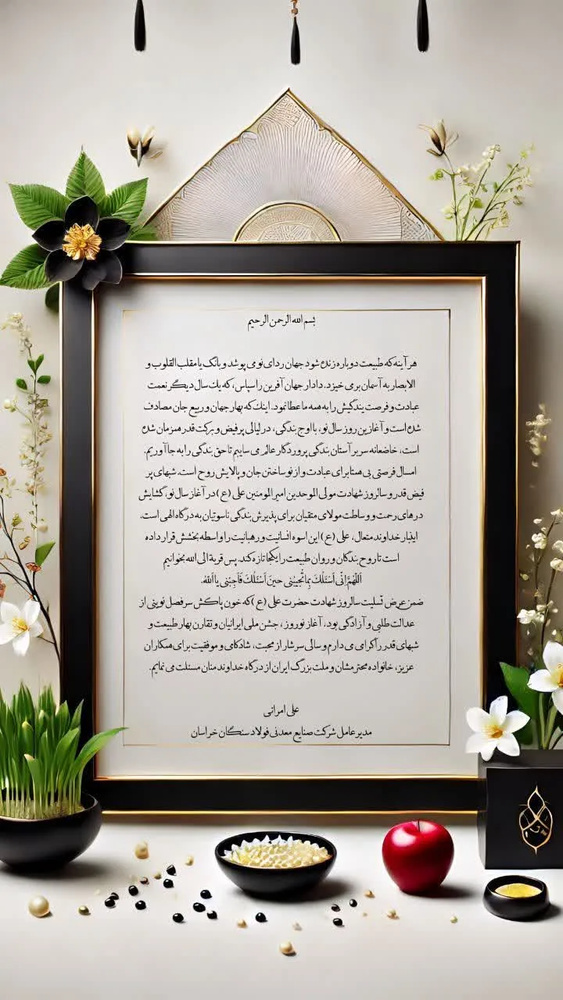 بسم الله الرحمن الرحیم
هر آینه که طبیعت دوباره زنده شود جهان ردای نو می پوشد و بانگ یا مقلب القلوب و
الابصار به آسمان برمی خیزد. دادار جهان آفرین را سپاس، که یک سال دیگر نعمت
عبادت و فرصت بندگیش را به همه ما عطا نمود. اینک که بهار جهان و ربیع جان مصادف
شده است و آغازین روز سال نو، با اوج بندگی، در لیالی پرفیض و برکت قدر همزمان شده
است، خاضعانه سر بر آستان بندگی پروردگار عالم می ساییم تا حق بندگی را به جا آوریم.
امسال فرصتی بی همتا برای عبادت و از نو ساختن جان و پالایش روح است. شبهای پر
فیض قدر و سالروز شهادت مولی الموحدین امیرالمومنین علی (ع) در آغاز سال نو، گشایش
درهای رحمت و وساطت مولای متقیان برای پذیرش بندگی ناسوتیان به درگاه الهی است.
ایفبار خداوند متعال، علی (ع) این اسوه انسانیت و رهبانیت را واسطه بخشش قرار داده
است تا روح بندگان و روان طبیعت را یکجا تازه کند. پس قربة الی الله بخوانیم
اَللّهُمَّ اِنّی اَسْئَلُکَ بِما تُجیبُنی حینَ اَسْئَلُکَ فَاَجِبْنی یا اَللهُ.
ضمن عرض تسلیت سالروز شهادت حضرت علی (ع) که خون پاکش سرفصل نوینی از
عدالت طلبی و آزادگی بود، آغاز نوروز ، جشن ملی ایرانیان و تقارن بهار طبیعت و
شبهای قدر را گرامی می دارم و سالی سرشار از محبت، شادکامی و موفقیت برای همکاران
عزیز، خانواده محترمشان و ملت بزرگ ایران از درگاه خداوند منان مسئلت می نمایم.
علی امرانی
مدیر عامل شرکت صنایع معدنی فولاد سنگان خراسان